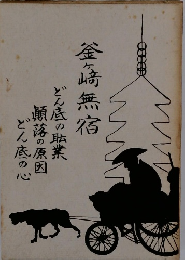 釜ヶ崎無宿
どん底の職業
顛落の原因
どん底の心